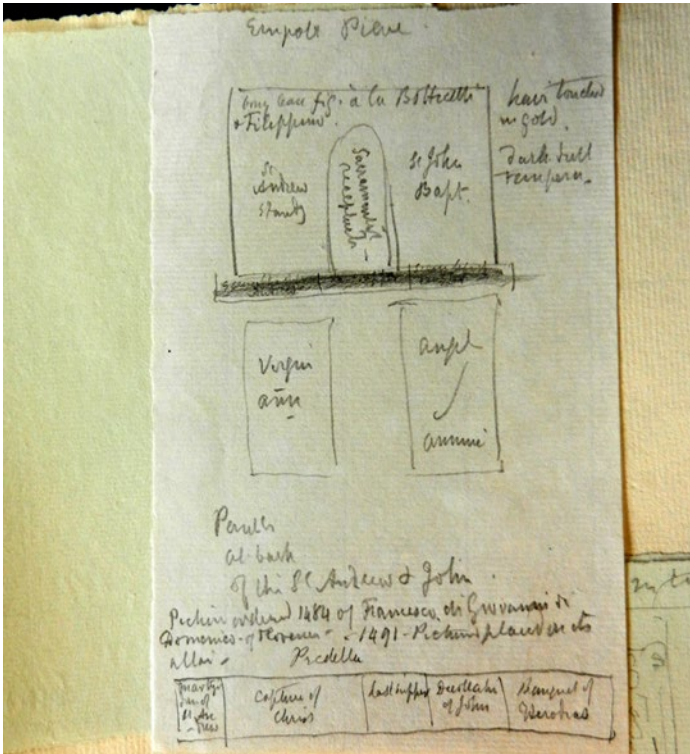 Empoli Pieve
bony lean fig. à la Botticelli
& Filippino.
hair touched
in gold.
dark dull
tempera.
St
Andrew
standg
Sacrament
receptacle
St John
Bapt.
Virgin
ann
angel
annunc
Panels
at back
of the St Andrew & John.
Picture ordered 1484 of Francesco di Giovanni di
Domenico of Florence - 1491 - Picture placed on its
altar -
Predella
martyr
dom of
St And
rew
Capture of
Christ
Last supper
Decollation
of John
Banquet of
Herodias